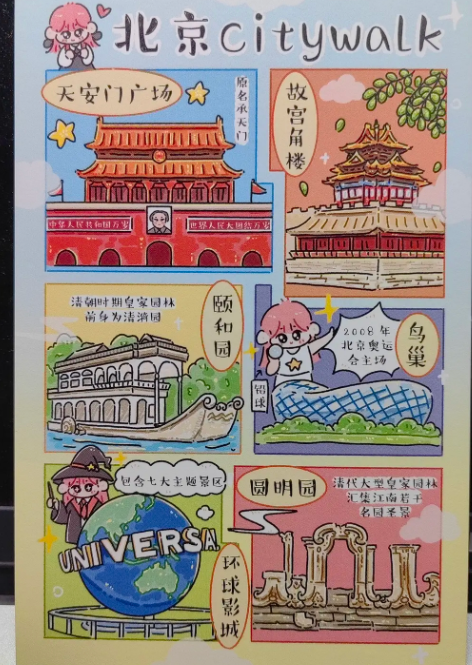 北京citywalk
天安门广场
原名承天门
中华人民共和国万岁
世界人民大团结万岁
故宫角楼
清朝时期皇家园林
前身为清漪园
颐和园
2008年
北京奥运
会主场
鸟巢
包含七大主题景区
UNIVERSA
环球影城
圆明园
清代大型皇家园林
汇集江南若干
名园圣景